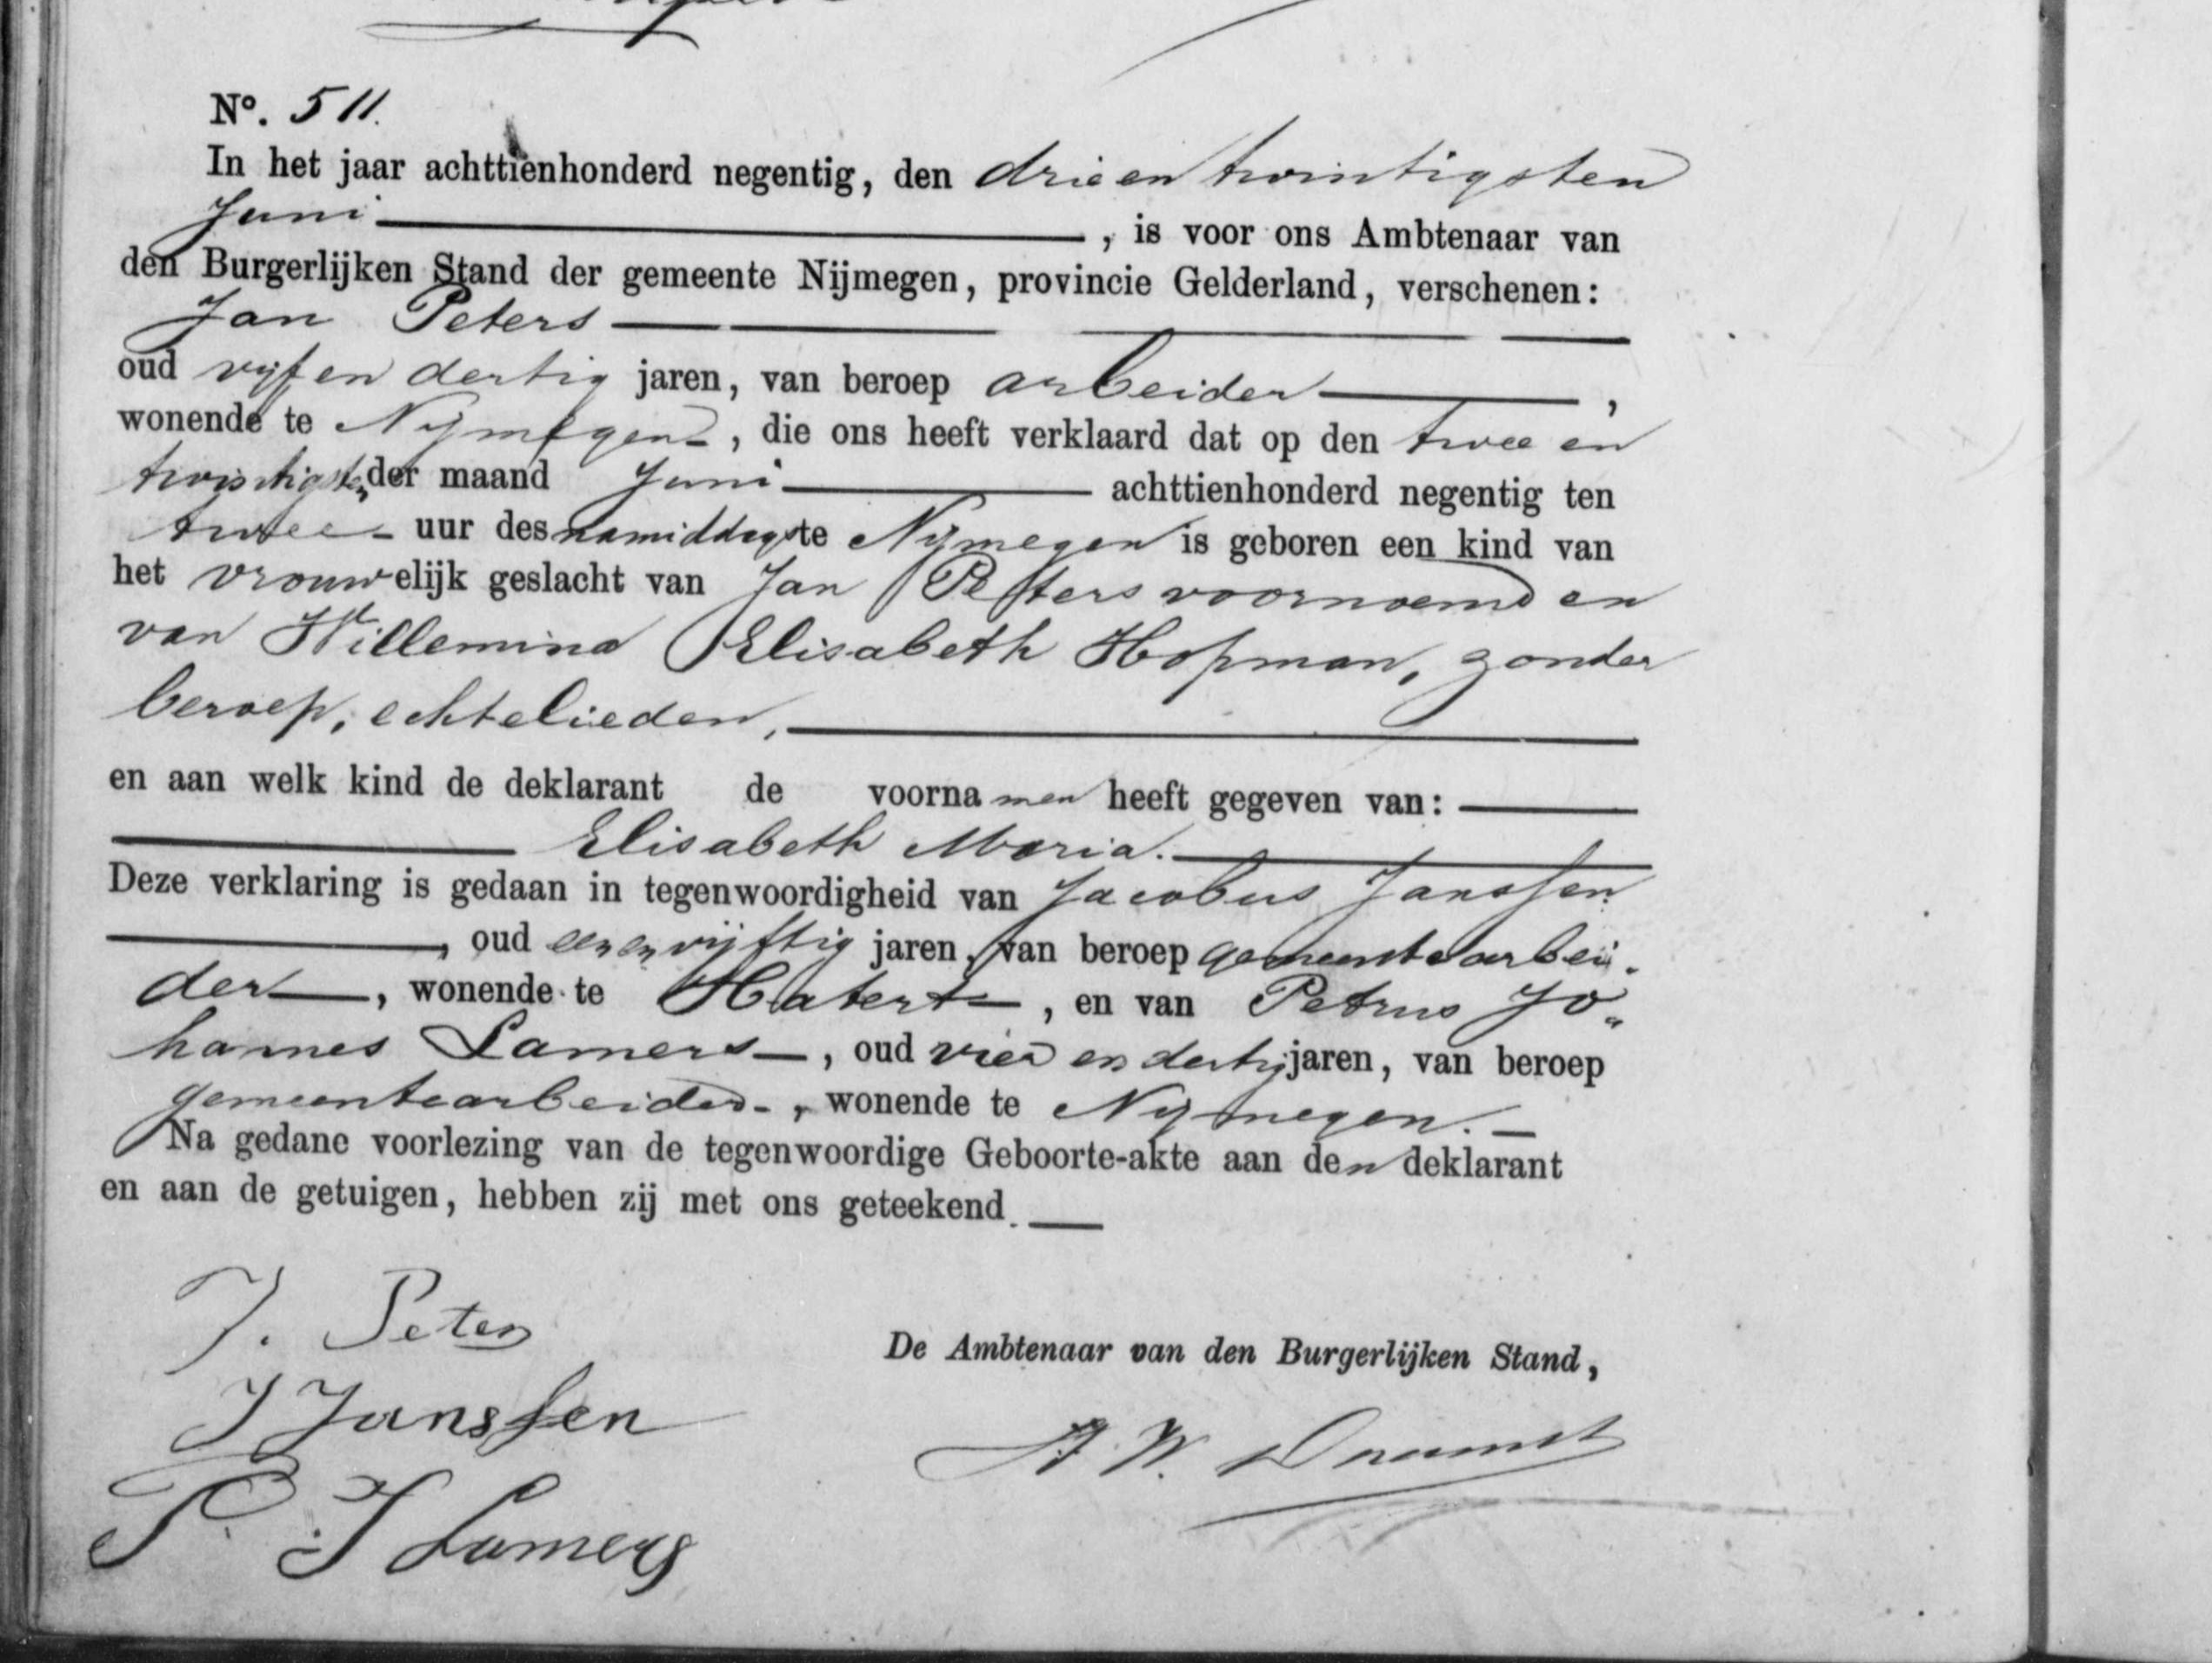 Nº. 511.
In het jaar achttienhonderd negentig, den drie en twintigsten
Juni, is voor ons Ambtenaar van
den Burgerlijken Stand der gemeente Nijmegen, provincie Gelderland, verschenen:
Jan Peters
oud vijf en dertig jaren, van beroep arbeider,
wonende te Nijmegen, die ons heeft verklaard dat op den twee en
twintigsten der maand Juni achttienhonderd negentig ten
twee uur des namiddags te Nijmegen is geboren een kind van
het vrouwelijk geslacht van Jan Peters voornoemd en
van Willemina Elisabeth Hopman, zonder
beroep, echtelieden,
en aan welk kind de deklarant de voornamen heeft gegeven van:
Elisabeth Maria.
Deze verklaring is gedaan in tegenwoordigheid van Jacobus Janssen
, oud een en vijftig jaren, van beroep gemeentearbei-
der, wonende te Hatert, en van Petrus Jo-
hannes Lamers, oud vier en dertig jaren, van beroep
gemeentearbeider, wonende te Nijmegen.
Na gedane voorlezing van de tegenwoordige Geboorte-akte aan den deklarant
en aan de getuigen, hebben zij met ons geteekend.
J. Peters
De Ambtenaar van den Burgerlijken Stand,
J Janssen
A. W.
P. J Lamers